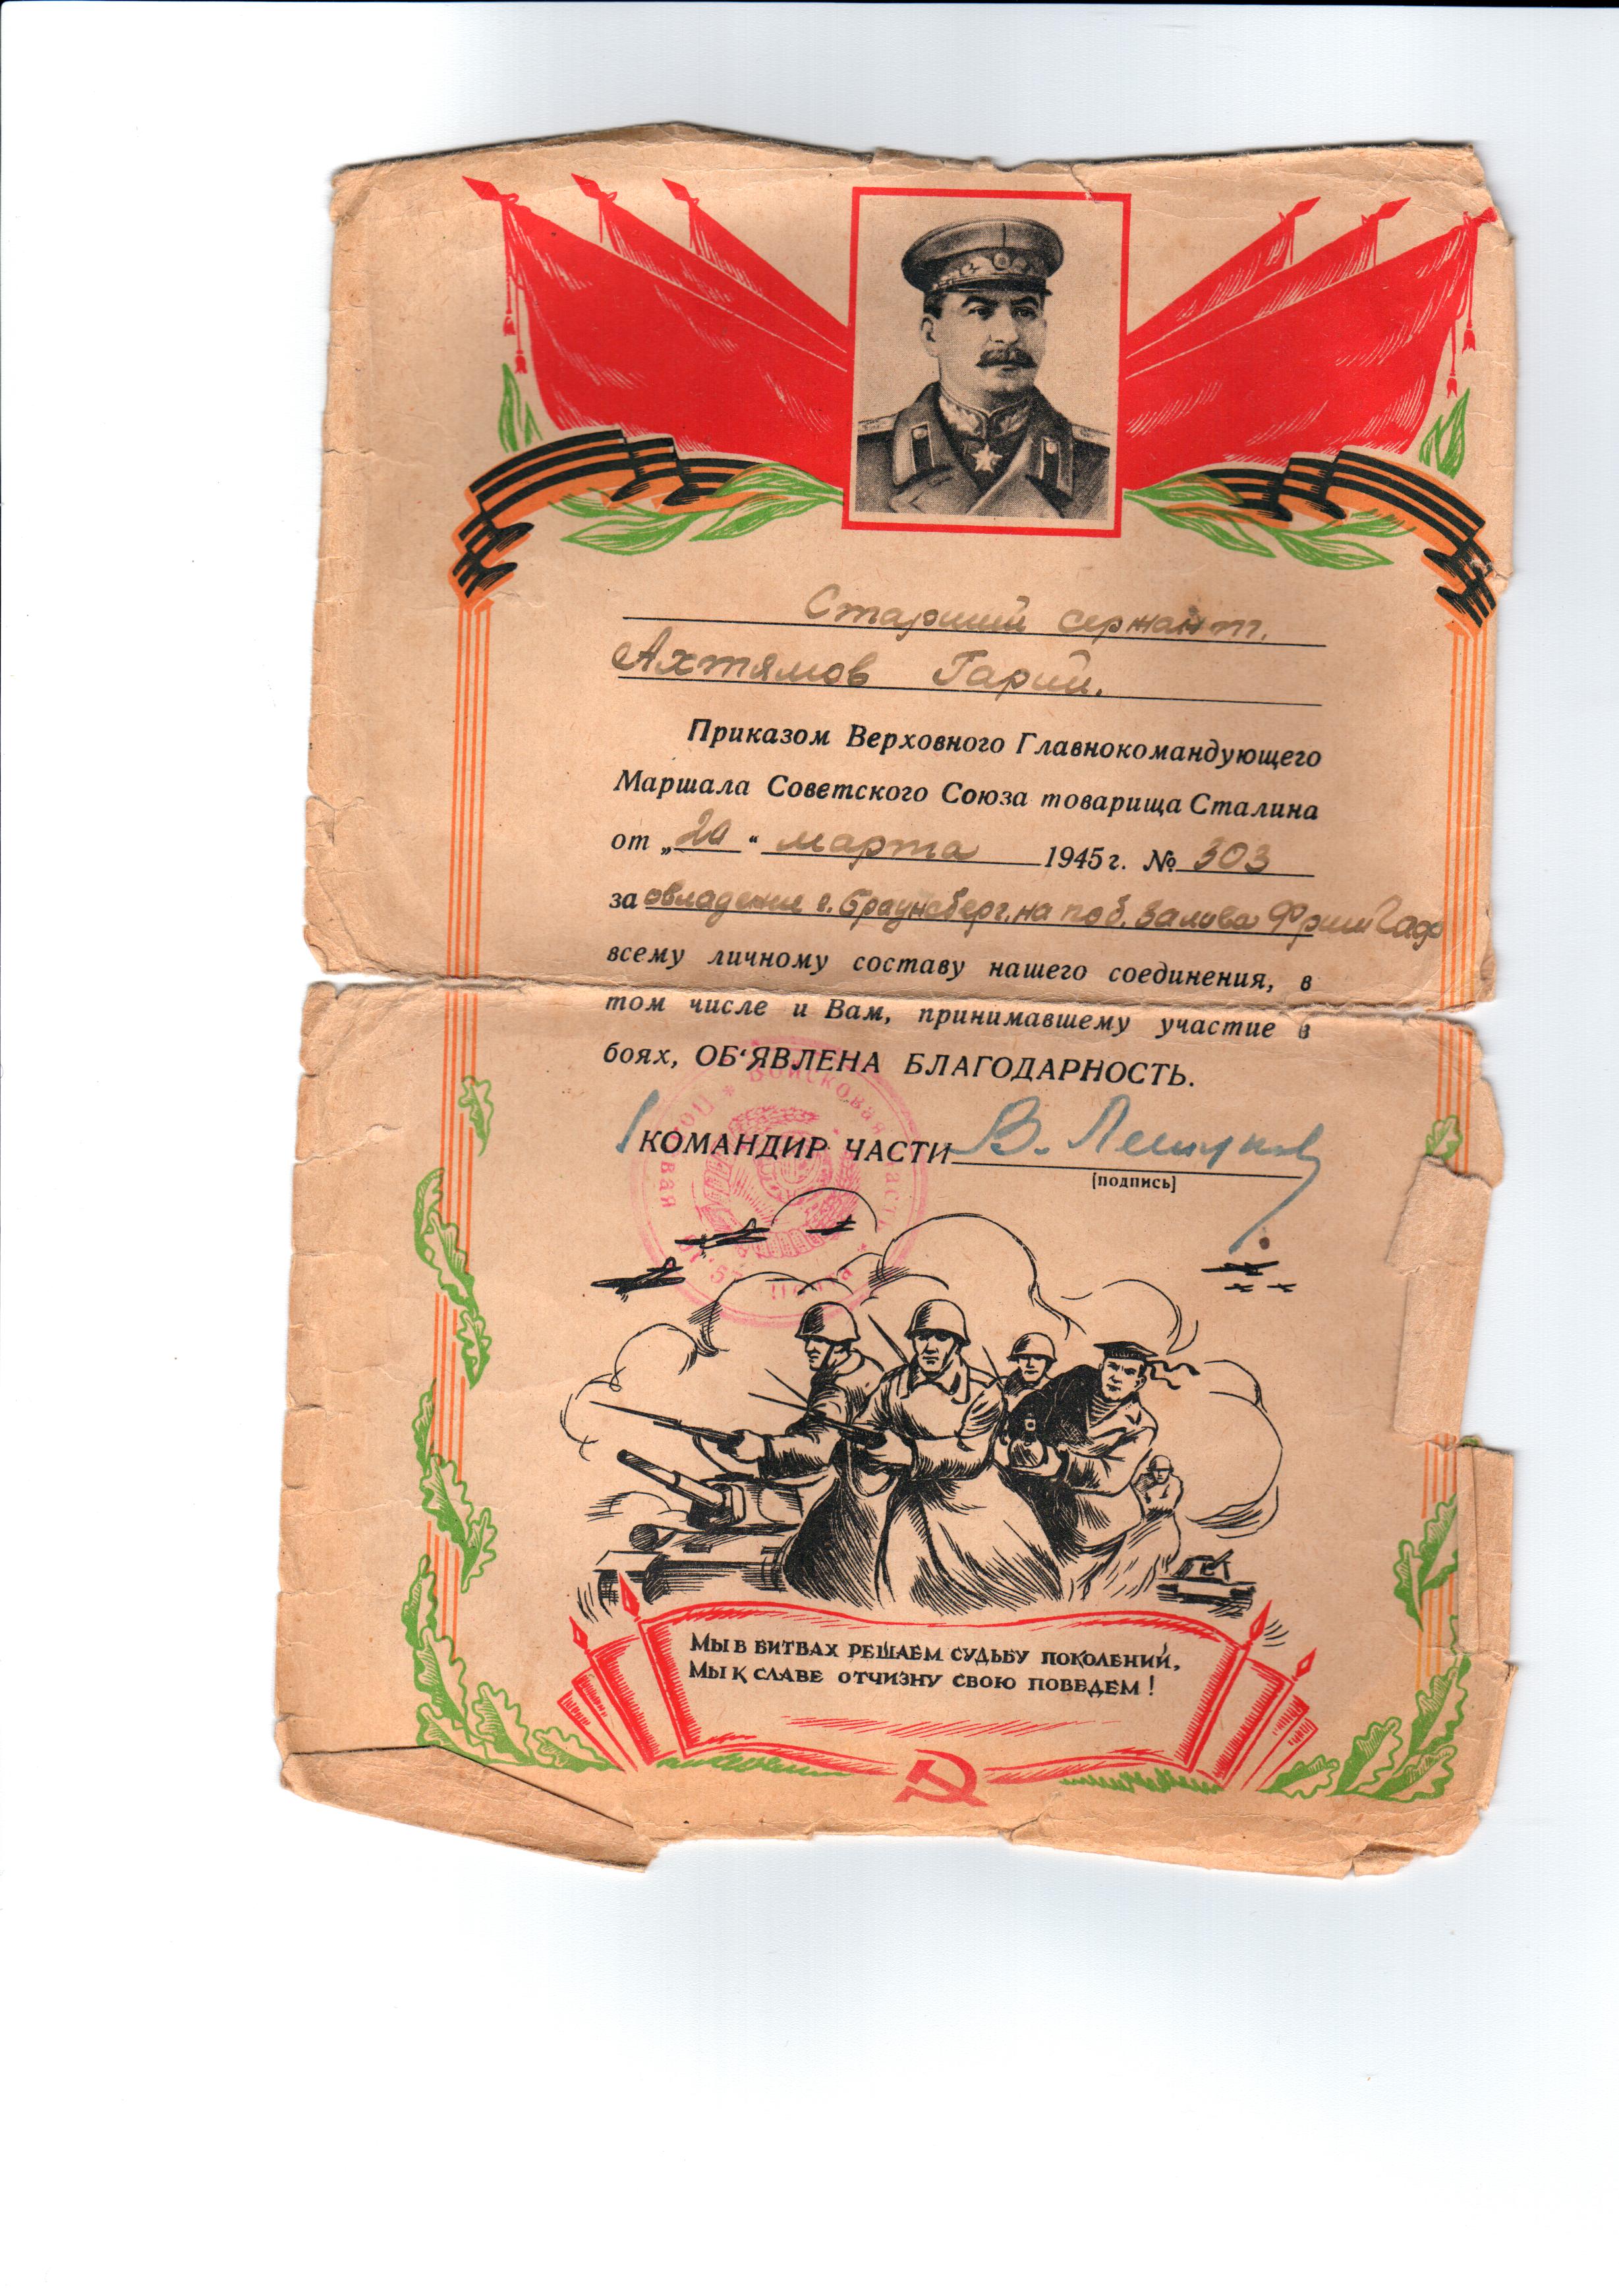 Старший сержант.
Ахтямов Гарий.
Приказом Верховного Главнокомандующего
Маршала Советского Союза товарища Сталина
от „20“ марта 1945 г. № 303
за овладение г. Браунсберг, на поб. залива Фриш Гаф
всему личному составу нашего соединения, в
том числе и Вам, принимавшему участие в
боях, ОБ‘ЯВЛЕНА БЛАГОДАРНОСТЬ.
КОМАНДИР ЧАСТИ В.
[подпись]
Войсковая часть
Полевая почта
Мы в битвах решаем судьбу поколений,
Мы к славе отчизну свою поведем!